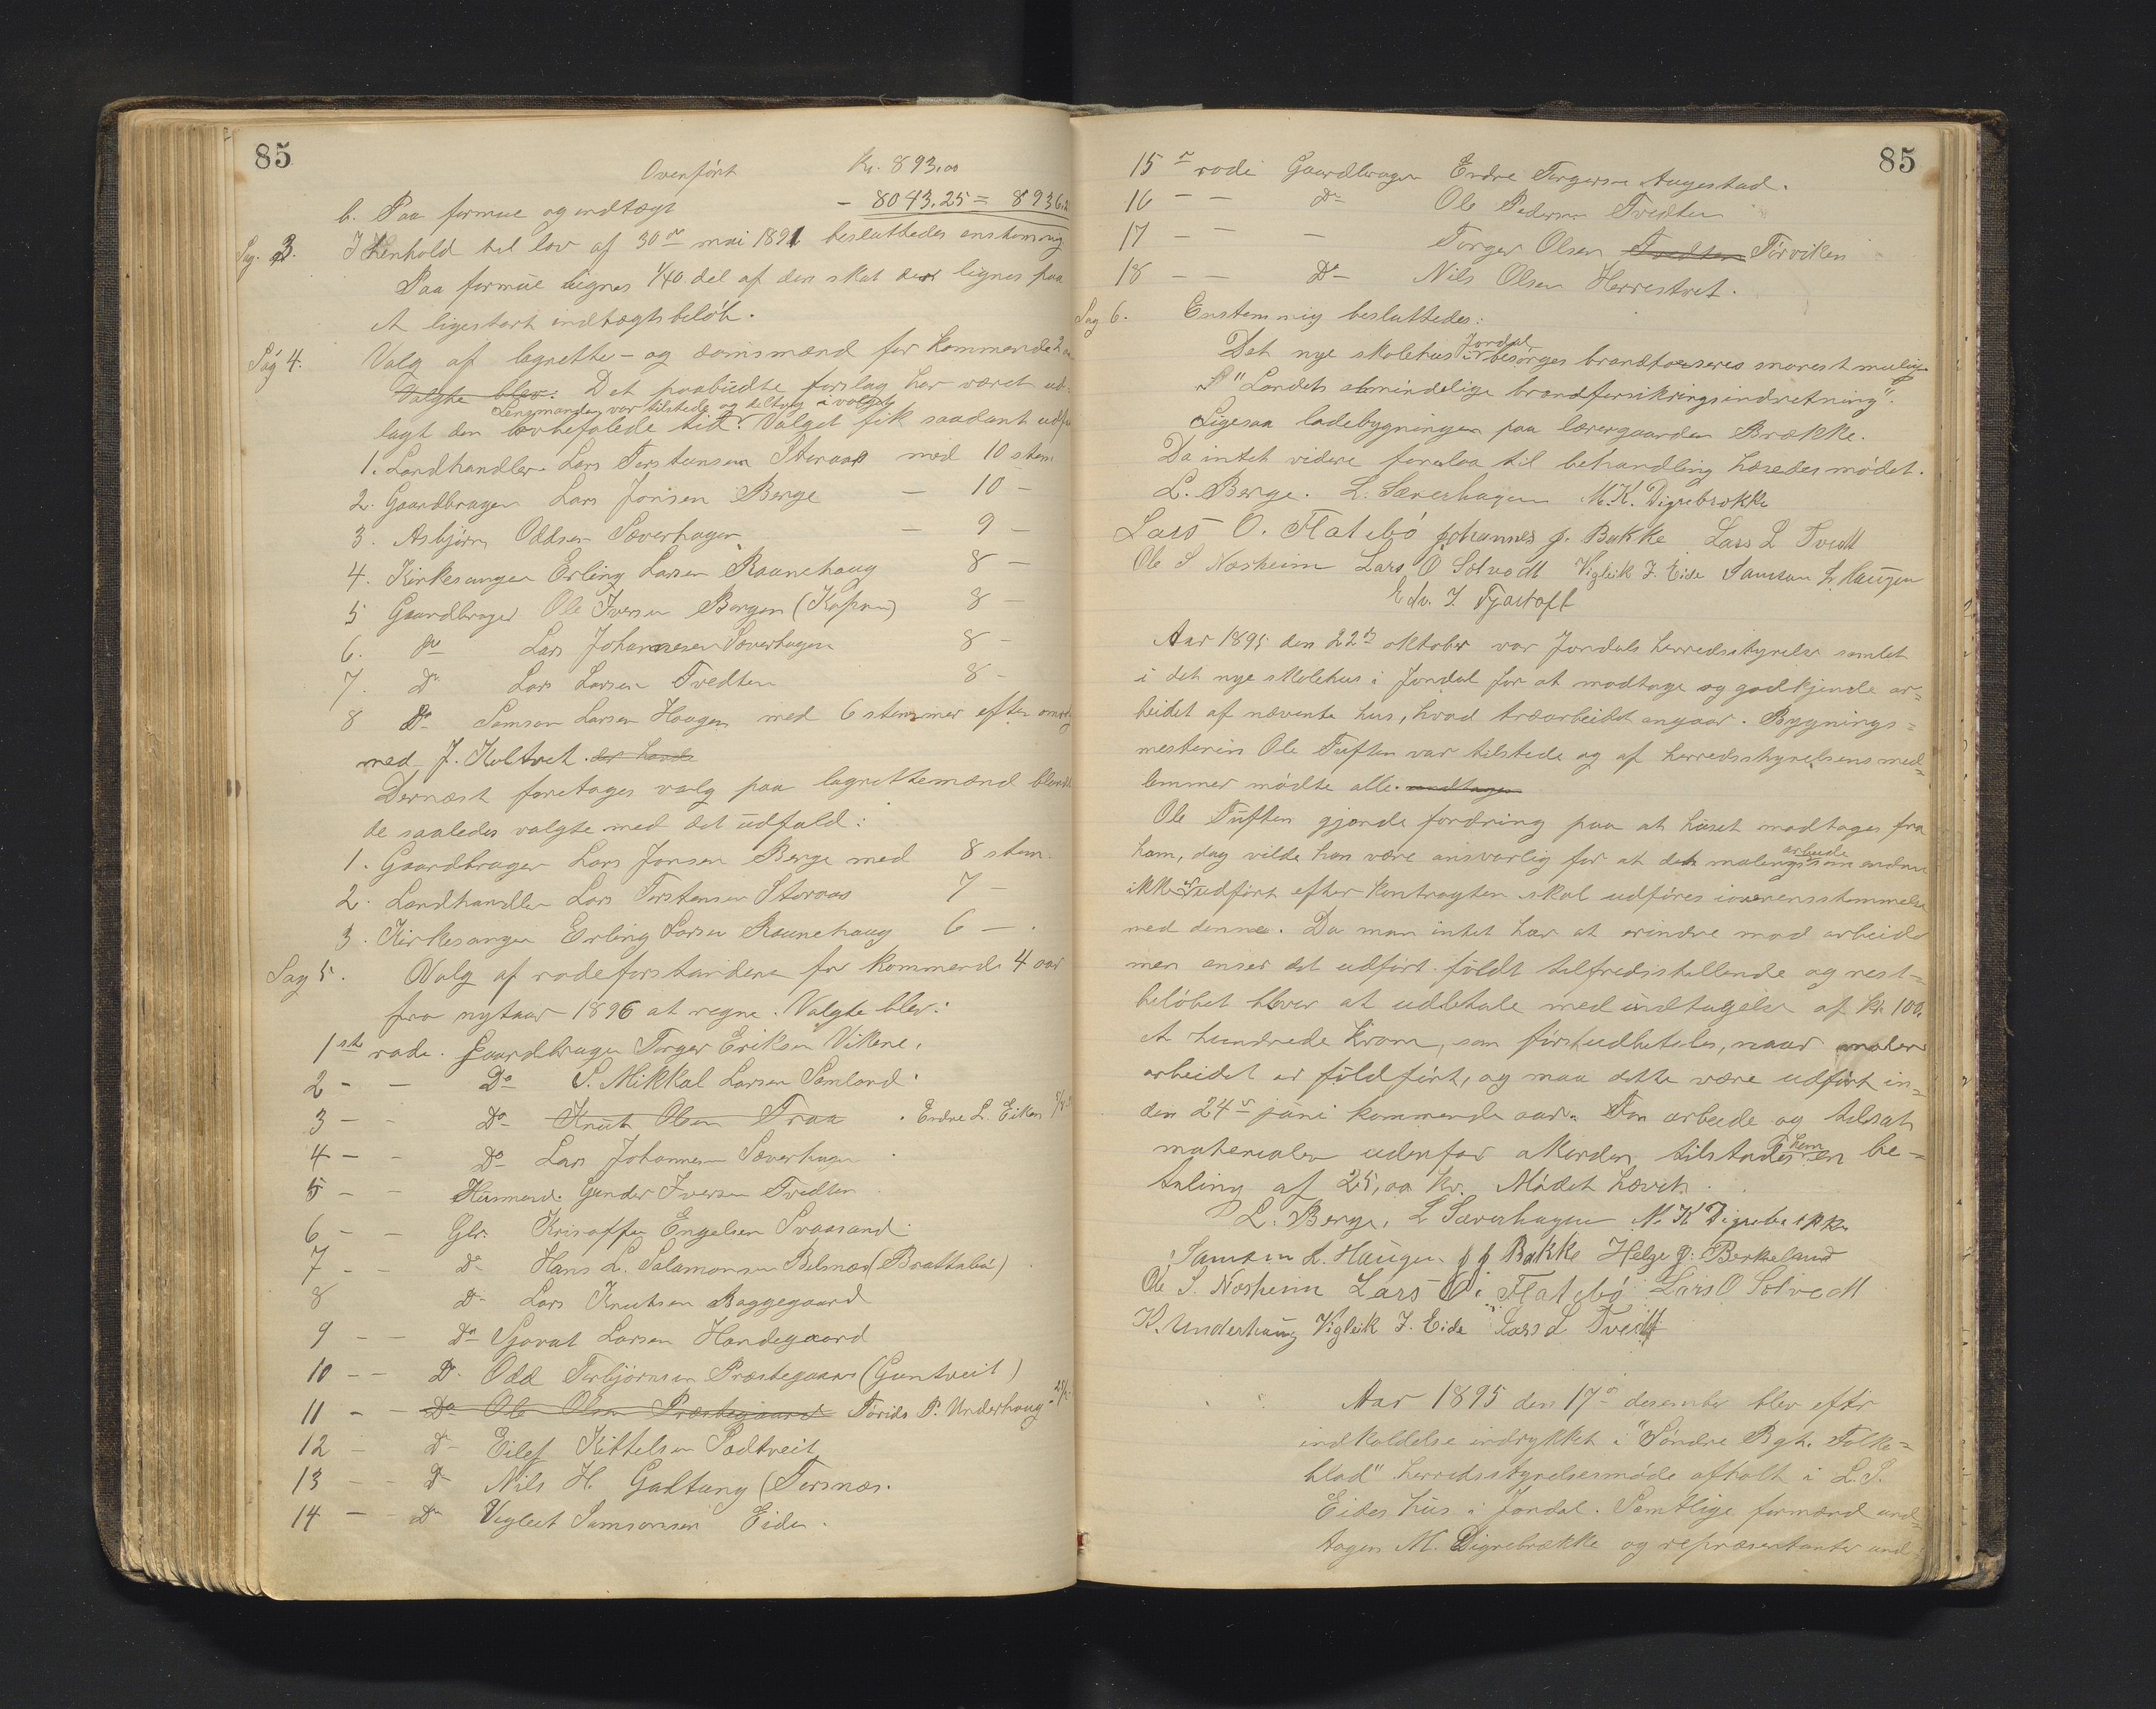 85
Overført Kr. 893.00
b. Paa formue og indtægt - 8043.25 = 8936.2
Sag. 3. I Henhold til lov af 30te mai 1891 besluttedes enstemmig
Paa formue lignes 1/40 del af den skat der lignes paa
et ligestort indtægtsbeløb.
Sag 4. Valg af lagrette- og domsmænd for kommende 2 aar
Valgte blev: Det paabudte forslag har været ud-
Lensmanden var tilstede og deltog i valget
lagt den lovbefalede tid. Valget fik saadant udfa
1. Landhandler Lars Torstensen Storaas med 10 stem
2. Gaardbruger Lars Jonsen Berge — 10 —
3. Asbjørn Oddsen Sæverhagen — 9 —
4. Kirkesanger Erling Larsen Raunehaug 8 —
5 Gaardbruger Ole Iversen Bergen 8 —
6. Do Lars Johannesen Sæverhagen 8 —
7. Do Lars Larsen Tvedten 8 -
8 Do Samson Larsen Haugen med 6 stemmer efter omvalg
med J. Koltvet.
Dernæst foretages valg paa lagrettemænd blandt
de saaledes valgte med det udfald:
1. Gaardbruger Lars Jonsen Berge med 8 stem.
2. Landhandler Lars Torstensen Storaas 7 —
3. Kirkesanger Erling Larsen Raunehaug 6 — .
Sag 5. Valg af rodeforstandere for kommende 4 aar
fra nytaar 1896 at regne. Valgte blev:
1ste rode. Gaardbruger Torger Eriksen Vikene.
2 - - Do S. Mikkal Larsen Samland.
3 - - Do Knut Olsen Traa . Endre L. Eiken
4 - - Do Lars Johannesen Sæverhagen
5 - - Husmand. Gunder Iversen Tvedten
6 - - Gbr. Kristoffer Engelsen Svaasand.
7 - - do Hans L. Salamonsen Belsnæs (Brattabø)
8 Do Lars Knutsen Baggegaard
9 - - Do Sjovat Larsen Handegaard
10 - - Do Odd Torbjørnsen Præstegaard (Guntveit)
11 - - Do Ole Olsen Præstegaard Tørids P. Underhaug
12 - Do Eilef Kittelsen Sædtveit
13 - - Do Nils H. Galtung (Torsnæs.
14 - - Do Vigleik Samsonsen Eide.
85
15de rode Gaardbruger Endre Torgersen Augestad.
16 - - Do Ole Pedersen Tvedten
17 - - — Torger Olsen Tvedten Tørviken
18 - - Do Nils Olsen Herrestvet.
Sag 6. Enstemmig besluttedes:
Jondal
Det nye skolehus i besørges brandforseres snarest mulig
I "Landets almindelige brandforsikringsindretning".
Ligesaa ladebygningen paa lærergaarden Brække.
Da intet videre forelaa til behandling hævedes mødet.
L. Berge. L. Sæverhagen M. K. Digrebrække
Lars O. Flatebø Johannes J. Bakke Lars L Tvedt
Ole S Næsheim Lars O Solvedt Vigleik J. Eide Samson L Haugen
Edv. J. Fjærtoft
Aar 1895 den 22de oktober var Jondals herredsstyrelse samlet
i det nye skolehus i Jondal for at modtage og godkjende ar=
beidet af nævnte hus, hvad træarbeidet angaar. Bygnings=
mesteren Ole Tuften var tilstede og af herredsstyrelsens med=
lemmer mødte alle. undtagen
Ole Tuften gjorde fordring paa at huset modtages fra
ham, dog vilde han være ansvarlig for at det malings arbeide som endnu
ikke er udført efter kontragten skal udføres i overensstemmelse
med denne. Da man intet har at erindre mod arbeidet
men anser det udført fuldt tilfredsstillende og rest=
beløbet bliver at udbetale med undtagelse af kr. 100,
et hundrede kroner, som først udbetales, naar maler
arbeidet er fuldført, og maa dette være udført in=
den 24de juni kommende aar. For arbeide og tilsat
materialer udenfor akorden tilstodes ham en be=
taling af 25,00 kr. Mødet hævet.
L. Berge. L Sæverhagen M. K Digrebrække
Samson L. Haugen J J Bakke Helge J. Berkeland
Ole S. Næsheim Lars O. Flatebø Lars O Solvedt
K. Underhaug Vigleik J. Eide Lars L Tvedt
Aar 1895 den 17de desember blev efter
indkaldelse indrykket i "Søndre Bgh. Folke=
blad" herredsstyrelsesmøde afholt i L. S.
Eides hus i Jondal. Samtlige formænd und=
tagen M. Digrebrække og repræsentanter und=